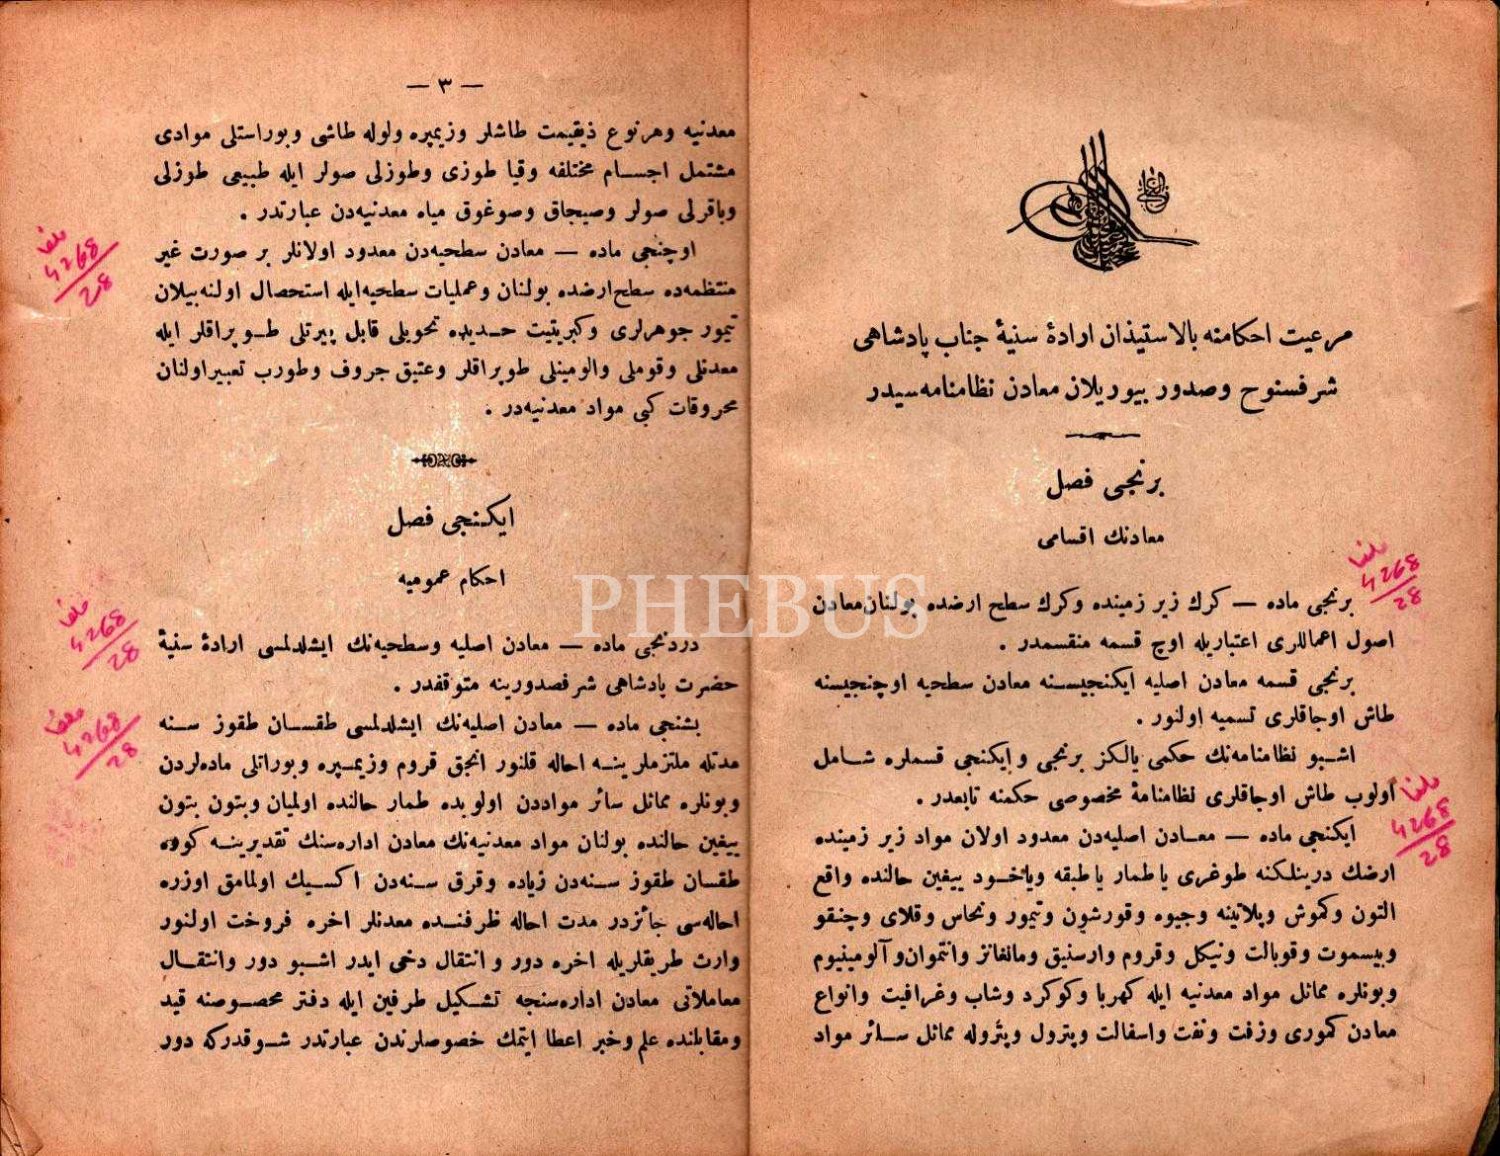 مرعیت احكامنه بالاستیذان ارادۀ سنیۀ جناب پادشاهی
شرفسنوح وصدور بیوریلان معادن نظامنامه سیدر
برنجی فصل
معادنك اقسامی
برنجی ماده — كرك زیر زمینده وكرك سطح ارضده بولنان معادن
اصول اعماللری اعتباریله اوچ قسمه منقسمدر .
برنجی قسمه معادن اصلیه ایكنجیسنه معادن سطحیه اوچنجیسنه
طاش اوجاقلری تسمیه اولنور .
اشبو نظامنامه‌نك حكمی یالكز برنجی و ایكنجی قسملره شامل
اولوب طاش اوجاقلری نظامنامۀ مخصوصی حكمنه تابعدر .
ایكنجی ماده — معادن اصلیه‌دن معدود اولان مواد زیر زمینده
ارضك درینلكنه طوغری یا طمار یا طبقه ویاخود ییغین حالنده واقع
التون وكموش وپلاتینه وجیوه وقورشون وتیمور ونحاس وقلای وچنقو
وبیسموت وقوبالت ونیكل وقروم وارسنیق ومانغانز وانتموان و آلومینیوم
وبونلره مماثل مواد معدنیه ایله كهربا وكوكرد وشاب وغرافیت وانواع
معادن كموری وزفت ونفت واسفالت وپترول وپتروله مماثل سائر مواد
— ٣ —
معدنیه وهرنوع ذیقیمت طاشلر وزیمپره ولوله طاشی وبوراستلی موادی
مشتمل اجسام مختلفه وقیا طوزی وطوزلی صولر ایله طبیعی طوزلی
وباقرلی صولر وصیجاق وصوغوق میاه معدنیه‌دن عبارتدر .
اوچنجی ماده — معادن سطحیه‌دن معدود اولانلر بر صورت غیر
منتظمه‌ده سطح ارضده بولنان وعملیات سطحیه ایله استحصال اولنه بیلان
تیمور جوهرلری وكبریتیت حدیده تحویلی قابل پیرتلی طوپراقلر ایله
معدنلی وقوملی والومینلی طوپراقلر وعتیق جروف وطورب تعبیر اولنان
محروقات كبی مواد معدنیه‌در .
ایكنجی فصل
احكام عمومیه
دردنجی ماده — معادن اصلیه وسطحیه‌نك ایشلدلمسی ارادۀ سنیۀ
حضرت پادشاهی شرفصدورینه متوقفدر .
بشنجی ماده — معادن اصلیه‌نك ایشلدلمسی طقسان طقوز سنه
مدتله ملتزملرینه احاله قلنور انجق قروم وزیمپره وبوراتلی ماده‌لردن
وبونلره مماثل سائر موادن اولوبده طمار حالنده اولمیان وبتون بتون
ییغین حالنده بولنان مواد معدنیه‌نك معادن اداره‌سنك تقدیرینه كوره
طقسان طقوز سنه‌دن زیاده وقرق سنه‌دن اكسیك اولمامق اوزره
احاله‌سی جائزدر مدت احاله ظرفنده معدنلر اخره فروخت اولنور
وارث طریقلریله اخره دور و انتقال دخی ایدر اشبو دور وانتقال
معاملاتی معادن اداره‌سنجه تشكیل طرفین ایله دفتر مخصوصنه قید
ومقابلنده علم وخبر اعطا ایتمك خصوصلرندن عبارتدر شوقدركه دور
4268
28
4268
28
4268
28
4268
28
4268
28
PHEBUS